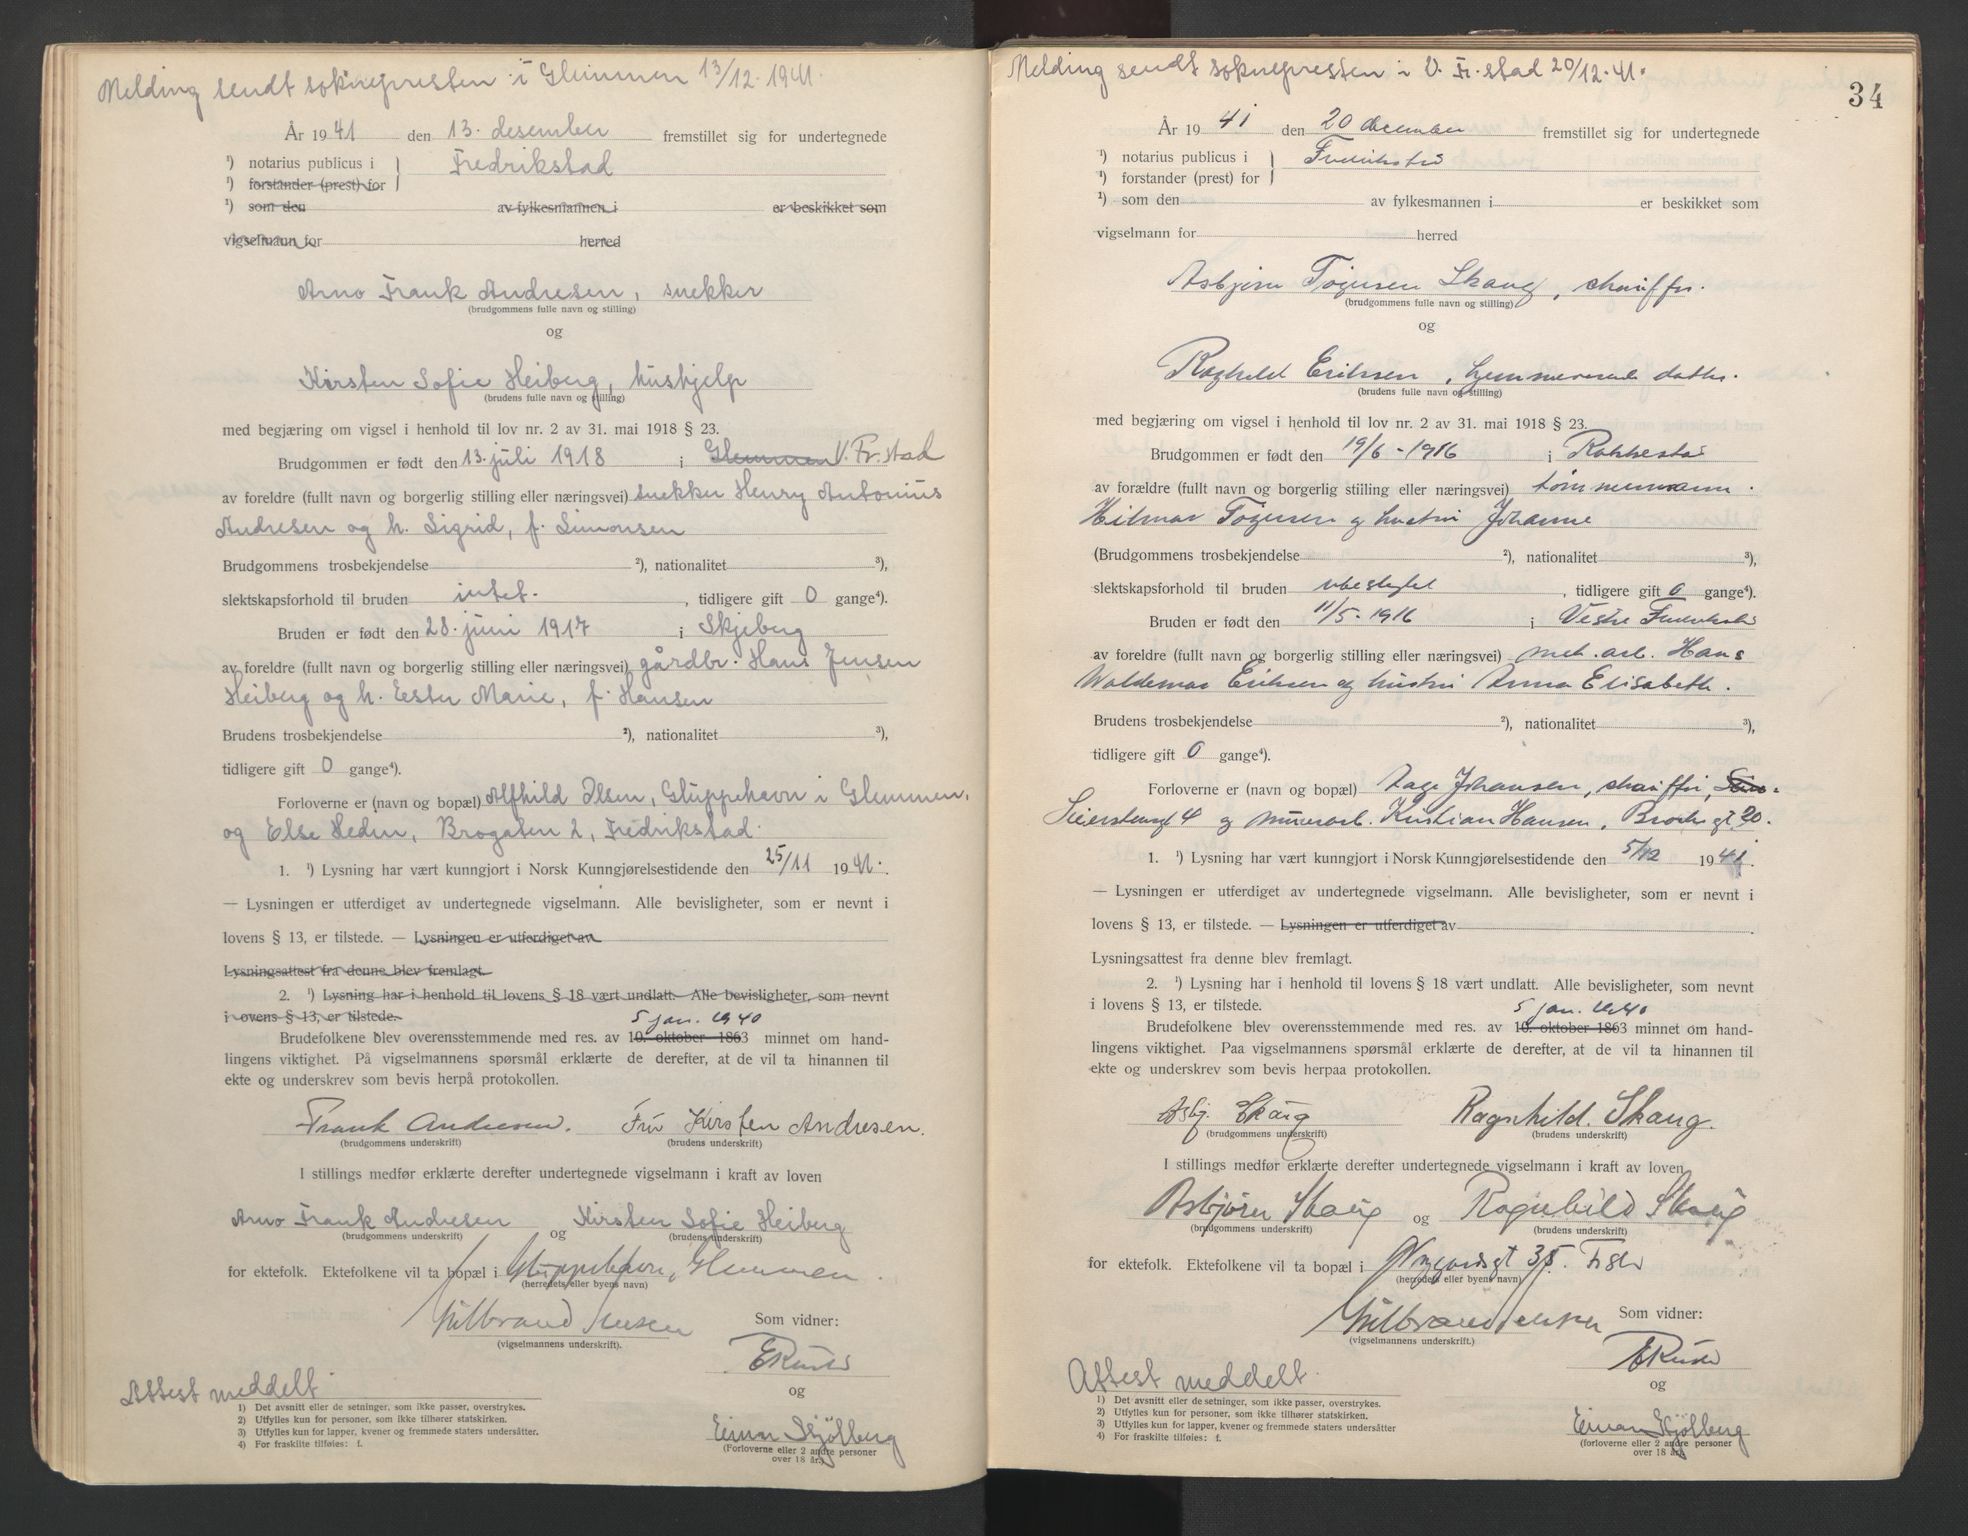 Melding sendt sokneprestan i Glemmen 13/12. 1941.
År 1941 den 13. desember fremstillet sig for undertegnede
¹) notarius publicus i Fredrikstad
¹) forstander (prest) for
¹) som den av fylkesmannen i er beskikket som
vigselmann for herred
Arno Frank Andresen, snekker
(brudgommens fulle navn og stilling)
og
Kirsten Sofie Heiberg, hushjelp
(brudens fulle navn og stilling)
med begjæring om vigsel i henhold til lov nr. 2 av 31. mai 1918 § 23.
Brudgommen er født den 13. juli 1918 i Glemmen V. Fr.stad
av foreldre (fullt navn og borgerlig stilling eller næringsvei) snekker Henry Antonius
Andresen og h. Sigrid, f. Simonsen
Brudgommens trosbekjendelse ²), nationalitet ³),
slektskapsforhold til bruden intet. , tidligere gift 0 gange⁴).
Bruden er født den 28. juni 1917 i Skjeberg
av foreldre (fullt navn og borgerlig stilling eller næringsvei) gårdbr. Hans Jensen
Heiberg og h. Ester Marie, f. Hansen
Brudens trosbekjendelse ²), nationalitet ³),
tidligere gift 0 gange⁴).
Forloverne er (navn og bopæl) Alfhild Olsen, Gluppehavn i Glemmen,
og Else Heden, Brogaten 2, Fredrikstad.
1. ¹) Lysning har vært kunngjort i Norsk Kunngjørelsestidende den 25/11 1941.
— Lysningen er utferdiget av undertegnede vigselmann. Alle bevisligheter, som er nevnt i
lovens § 13, er tilstede. — Lysningen er utferdiget av
Lysningsattest fra denne blev fremlagt.
2. ¹) Lysning har i henhold til lovens § 18 vært undlatt. Alle bevisligheter, som nevnt
i lovens § 13, er tilstede.
5 jan. 1940
Brudefolkene blev overensstemmende med res. av 10. oktober 1863 minnet om hand-
lingens viktighet. På vigselmannens spørsmål erklærte de derefter, at de vil ta hinannen til
ekte og underskrev som bevis herpå protokollen.
Frank Andresen. Fru Kirsten Andresen.
(brudgommens underskrift) (brudens underskrift)
I stillings medfør erklærte derefter undertegnede vigselmann i kraft av loven
Arno Frank Andresen og Kirsten Sofie Heiberg
(brudgommens underskrift) (brudens underskrift)
for ektefolk. Ektefolkene vil ta bopæl i Gluppehavn, Glemmen.
(herredets eller byens navn)
Hilbrand Jensen
(vigselmannens underskrift).
Som vidner:
og
Attest meddelt
1) Det avsnitt eller de setninger, som ikke passer, overstrykes.
2) Utfylles kun for personer, som ikke tilhører statskirken.
3) Utfylles kun for lapper, kvener og fremmede staters undersåtter.
4) For fraskilte tilføies: f.
Einar Skjölberg
(Forloverne eller 2 andre personer
over 18 år.)
Melding sendt sokneprestan i V. Fr.stad 20/12. 41.
34
År 1941 den 20 december fremstillet sig for undertegnede
¹) notarius publicus i Fredrikstad
¹) forstander (prest) for
¹) som den av fylkesmannen i er beskikket som
vigselmann for herred
Asbjørn Tøgersen Skaug, chauffør.
(brudgommens fulle navn og stilling)
og
Raghild Eriksen, hjemmeværende datter.
(brudens fulle navn og stilling)
med begjæring om vigsel i henhold til lov nr. 2 av 31. mai 1918 § 23.
Brudgommen er født den 19/6 - 1916 i Rakkestad
av forældre (fullt navn og borgerlig stiiling eller næringsvei) tømmermann
Hilmar Tøgersen og hustru Johanne
(Brudgommens trosbekjendelse ²), nationalitet ³),
slektskapsforhold til bruden ubeslegtet , tidligere gift 0 gange⁴).
Bruden er født den 11/5 - 1916 i Vestre Fredrikstad
av foreldre (fullt navn og borgerlig stilling eller næringsvei) mek. arb. Hans
Waldemar Eriksen og hustru Anna Elisabeth.
Brudens trosbekjendelse ²), nationalitet ³),
tidligere gift 0 gange⁴).
Forloverne er (navn og bopæl) Aage Johansen, chauffør,
Seierstensgt 4 og murerarb. Kristian Hansen, Brochs gt. 20.
1. ¹) Lysning har vært kunngjort i Norsk Kunngjørelsestidende den 5/12 1941.
— Lysningen er utferdiget av undertegnede vigselmann. Alle bevisligheter, som er nevnt i
lovens § 13, er tilstede. — Lysningen er utferdiget av
Lysningsattest fra denne blev fremlagt.
2. ¹) Lysning har i henhold til lovens § 18 vært undlatt. Alle bevisligheter, som nevnt
i lovens § 13, er tilstede.
5 jan. 1940
Brudefolkene blev overensstemmende med res. av 10. oktober 1863 minnet om hand-
lingens viktighet. Paa vigselmannens spørsmål erklærte de derefter, at de vil ta hinannen til
ekte og underskrev som bevis herpaa protokollen.
Asbj. Skaug Ragnhild. Skaug.
(brudgommens underskrift) (brudens underskrift)
I stillings medfør erklærte derefter undertegnede vigselmann i kraft av loven
Asbjørn Skaug og Ragnhild Skaug
(brudgommens underskrift) (brudens underskrift)
for ektefolk. Ektefolkene vil ta bopæl i Nygaardsgt 35.
(herredets eller byens navn)
Hilbrand Jensen
(vigselmannens underskrift.)
Som vidner:
og
Attest meddelt.
1) Det avsnitt eller de setninger, som ikke passer, overstrykes.
2) Utfylles kun for personer, som ikke tilhører statskirken.
3) Utfylles kun for lapper, kvener og fremmede staters undersåtter
4) For fraskilte tilføies: f.
Einar Skjölberg
(forloverne eller 2 andre personer
over 18 år.)